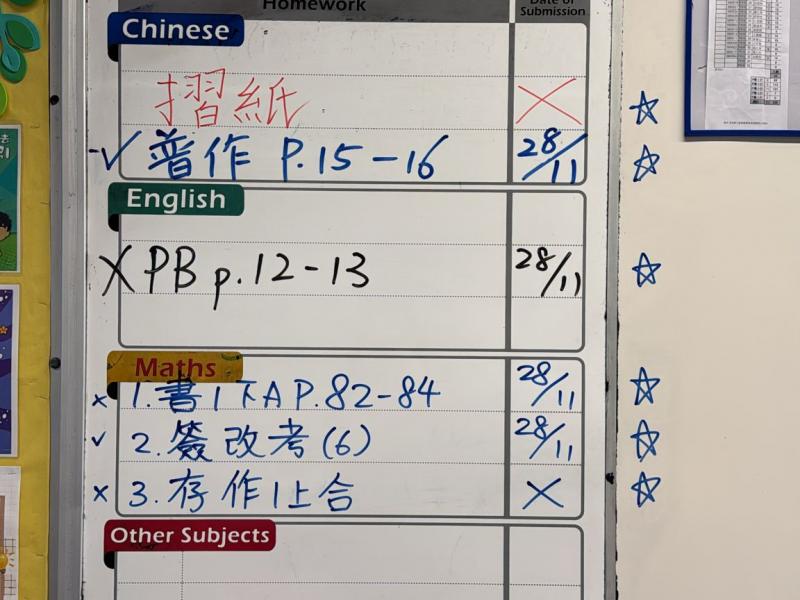 Homework
Date of Submission
Chinese
摺紙 ×
✓ 普作 P.15-16 28/11
English
X PB p.12-13 28/11
Maths
× 1.書1下A P.82-84 28/11
✓ 2.簽改考(6) 28/11
× 3.存作1上合 ×
Other Subjects